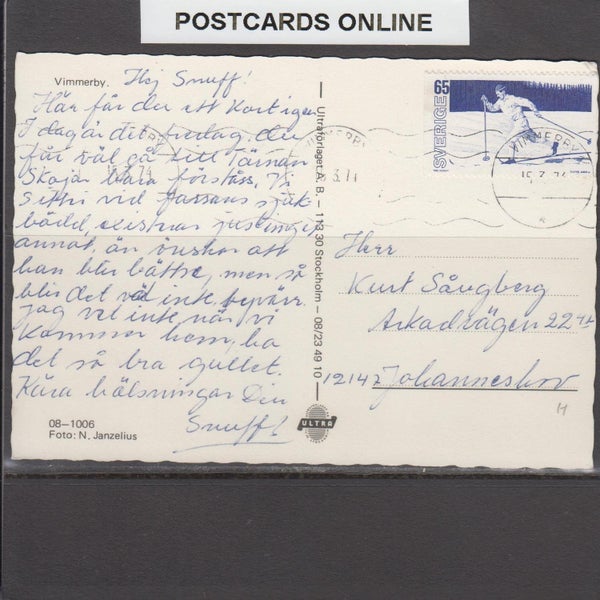 POSTCARDS ONLINE
Vimmerby. Hej Snuff!
Här får du ett kort igen
I dag är det fredag, du
får väl gå till Tärnan
Skajär bara förstås. Vi
sitter vid Jassans sjuk
bädd, existrar just inget
annat, än önskar att
han blir bättre, men så
blir det väl inte, tyvärr
jag vet inte när vi
kommer hem, ha
det så bra gullet.
Kära hälsningar Din
Snuff!
08–1006
Foto: N. Janzelius
Ultraförlaget A. B. – 113 30 Stockholm – 08/23 49 10
ULTRA
SVERIGE 65
VIMMERBY
15.3.74
Herr
Kurt Sångberg
Arkadvägen 22
12142 Johanneshov